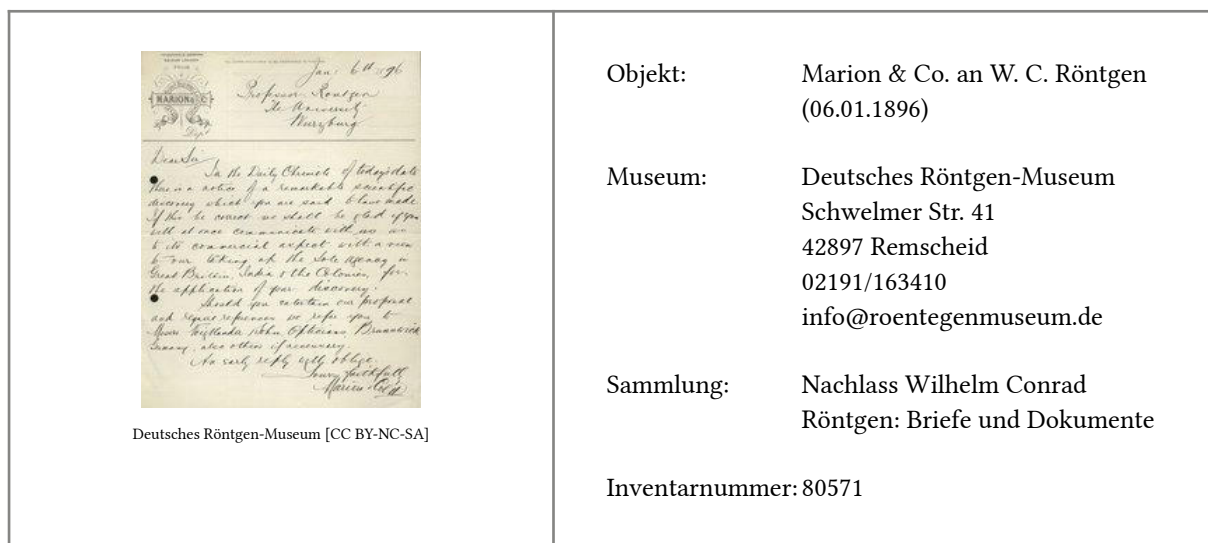 MARION & Co
Dept
Jan: 6th 1896
Professor Röntgen
The University
Wurzburg
Dear Sir
In the Daily Chronicle of today's date
there is a notice of a remarkable scientific
discovery which you are said to have made
If this be correct we shall be glad if you
will at once communicate with us as
to its commercial aspect with a view
to our taking up the Sole Agency in
Great Britain, India & the Colonies, for
the application of your discovery.
Should you entertain our proposal
and require references we refer you to
Messrs Voigtlander & Sohn, Opticians, Brunswick
Germany, also others if necessary.
An early reply will oblige.
Yours faithfully
Marion & Co
Deutsches Röntgen-Museum [CC BY-NC-SA]
Objekt: Marion & Co. an W. C. Röntgen
(06.01.1896)
Museum: Deutsches Röntgen-Museum
Schwelmer Str. 41
42897 Remscheid
02191/163410
info@roentegenmuseum.de
Sammlung: Nachlass Wilhelm Conrad
Röntgen: Briefe und Dokumente
Inventarnummer: 80571